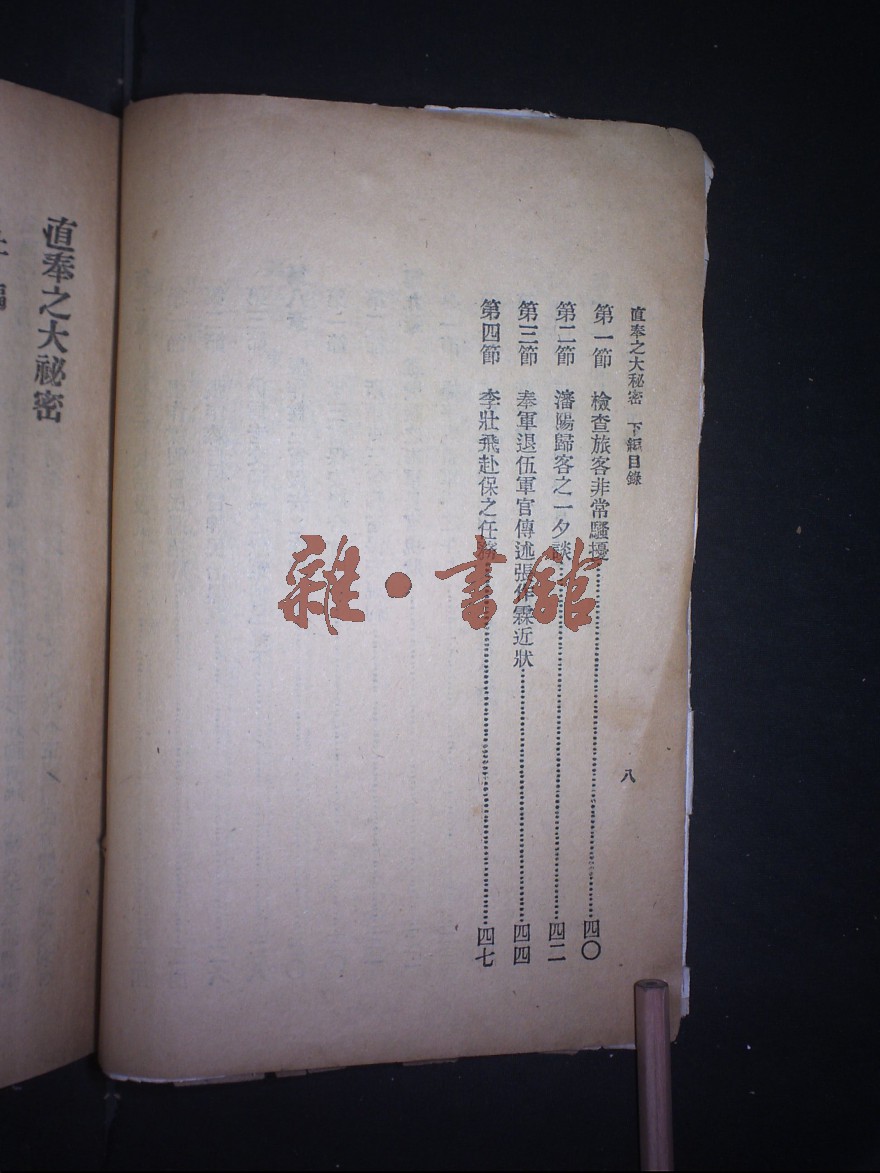 直奉之大秘密　下編目錄
第一節　檢查旅客非常騷擾……四〇
第二節　瀋陽歸客之一夕談……四二
第三節　奉軍退伍軍官傳述張作霖近狀……四四
第四節　李壯飛赴保之任務……四七
八
直奉之大祕密
上編
雜·書館